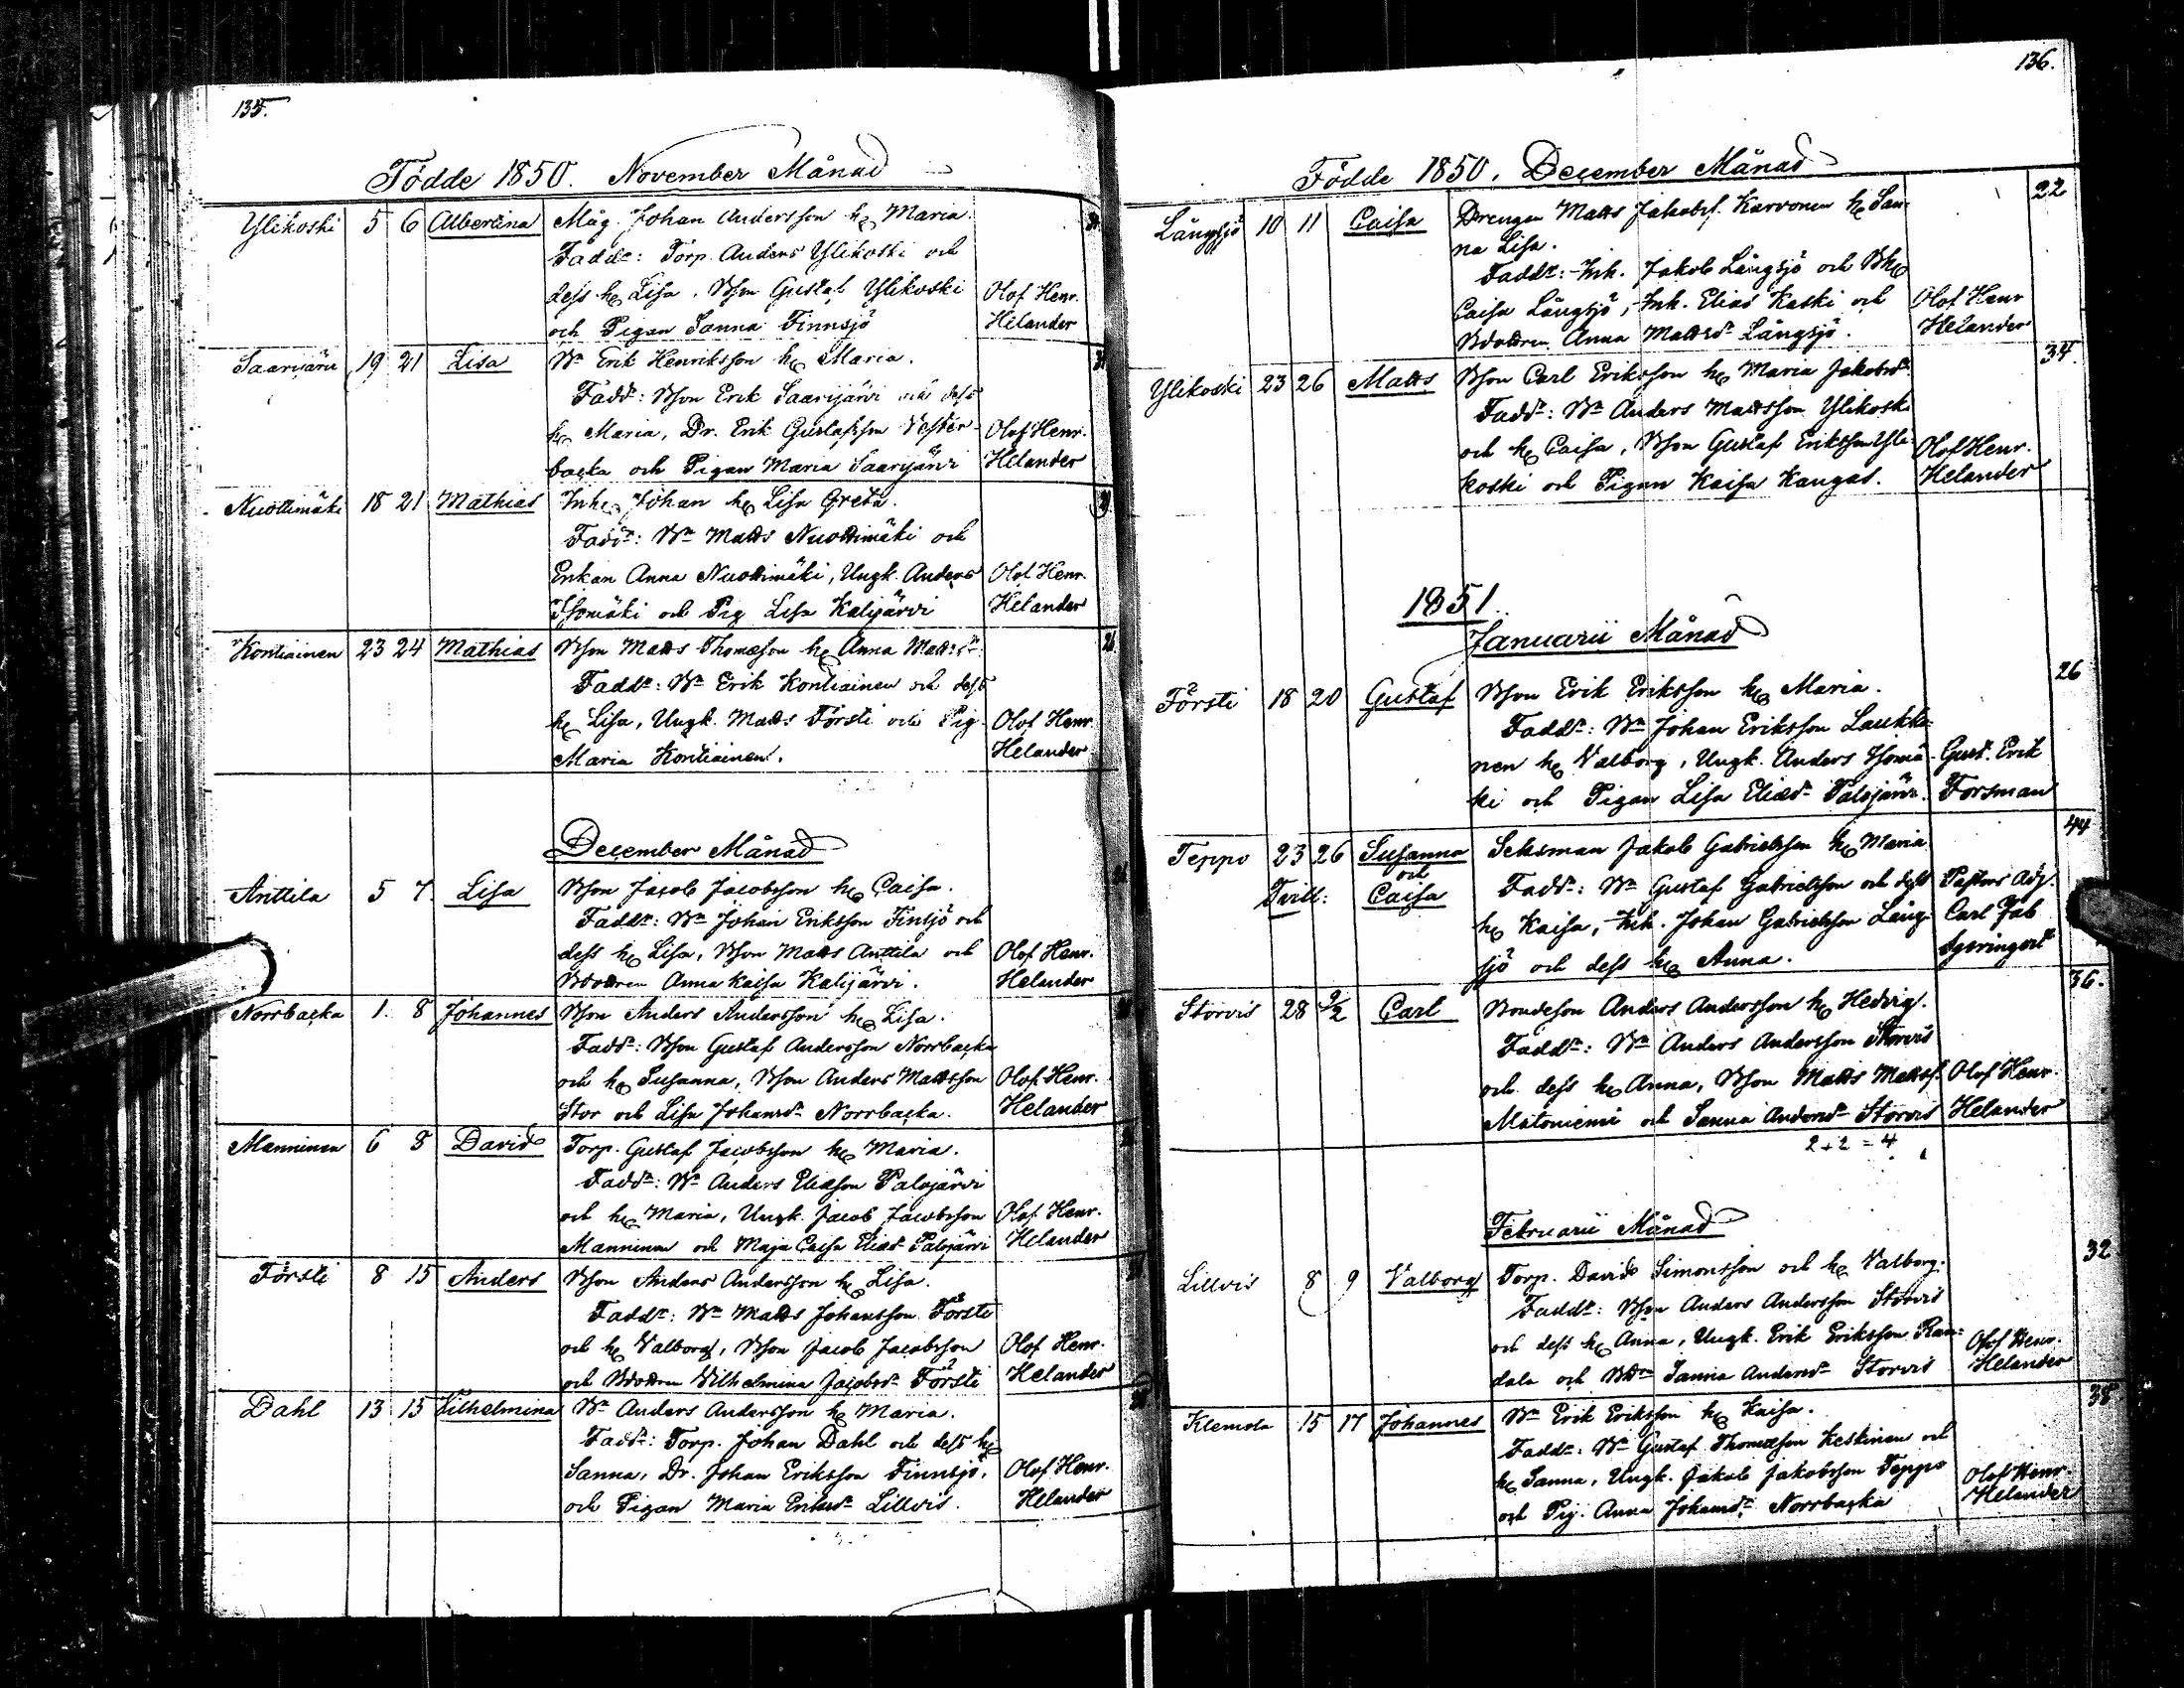 135.
Födde 1850. November Månad
Ylikoski 5 6 Albertina Måg Johan Andersson h. Maria.
Fadd: Torp. Anders Ylikoski och
dess h. Lisa. Bson Gustaf Ylikoski Olof Henr.
och Pigan Sanna Finnsjö Helander
Saarijärvi 19 21 Lisa Bn Erik Henriksson h. Maria.
Fadd: Bson Erik Saarijärvi och dess
h. Maria, Dr. Erik Gustafsson Vester- Olof Henr.
backa och Pigan Maria Saarijärvi Helander
Nuottimäki 18 21 Mathias Inh. Johan h. Lisa Greta.
Fadd: Bn Matts Nuottimäki och
Enkan Anna Nuottimäki, Ungk. Anders Olof Henr.
Isomäki och Pig Lisa Kalijärvi Helander
Kontiainen 23 24 Mathias Bson Matts Thomasson h. Anna Mattsd.
Fadd: Bn Erik Kontiainen och dess
h. Lisa, Ungk. Matts Försti och Pig. Olof Henr.
Maria Kontiainen. Helander
December Månad
Anttila 5 7 Lisa Bson Jacob Jacobsson h. Caisa.
Fadd: Bn Johan Eriksson Finsjö och
dess h. Lisa, Bson Matts Anttila och Olof Henr.
Bdottren Anna Kaisa Kalijärvi. Helander
Norrbacka 1. 8 Johannes Bson Anders Andersson h. Lisa.
Fadd: Bson Gustaf Andersson Norrbacka
och h. Susanna, Bson Anders Mattsson Olof Henr.
Stor och Lisa Johansd. Norrbacka. Helander
Manninen 6 8 David Torp. Gustaf Jacobsson h. Maria.
Fadd: Bn Anders Eliasson Palojärvi
och h. Maria, Ungk. Jacob Jacobsson Olof Henr.
Manninen och Maja Caisa Eliasd. Palojärvi Helander
Försti 8 15 Anders Bson Anders Andersson h. Lisa.
Fadd: Bn Matts Johansson Försti
och h. Valborg, Bson Jacob Jacobsson Olof Henr.
och Bdottren Vilhelmina Jacobsd. Försti Helander
Dahl 13 15 Vilhelmina Bn Anders Andersson h. Maria.
Fadd: Torp. Johan Dahl och dess h.
Sanna, Dr. Johan Eriksson Finnsjö, Olof Henr.
och Pigan Maria Eriksd. Lillvis. Helander
136.
Födde 1850. December Månad
Långsjö 10 11 Caisa Drengen Matts Jakobss. Karvonen h. San- 22
na Lisa.
Fadd: Inh. Jakob Långsjö och Bh.
Caisa Långsjö, Inh. Elias Kaski och Olof Henr
Bdottren Anna Mattsd. Långsjö. Helander
Ylikoski 23 26 Matts Bson Carl Eriksson h. Maria Jakobsd. 34.
Fadd: Bn Anders Mattsson Ylikoski
och h. Caisa, Bson Gustaf Eriksson Yli- Olof Henr.
koski och Pigan Kaisa Kangas. Helander
1851.
Januarii Månad
Försti 18 20 Gustaf Bson Erik Eriksson h. Maria. 26
Fadd: Bn Johan Eriksson Laukko-
nen h. Valborg, Ungk. Anders Isomä- Gust. Erik
ki och Pigan Lisa Eliasd. Palojärvi. Forsman
Teppo 23 26 Susanna Seksman Jakob Gabrielsson h. Maria 44
Tvill: och Caisa Fadd: Bn Gustaf Gabrielsson och dess Pastors Adj.
h. Kaisa, Inh. Johan Gabrielsson Lång- Carl Jab
sjö och dess h. Anna.
Storvis 28 2/2 Carl Bondeson Anders Andersson h. Hedvig. 36.
Fadd: Bn Anders Andersson Storvis
och dess h. Anna, Bson Matts Mattss. Olof Henr.
Matoniemi och Sanna Andersd. Storvis Helander
2 + 2 = 4
Februarii Månad
Lillvis 8 9 Valborg Torp. David Simonsson och h. Valborg. 32
Fadd: Bson Anders Andersson Storvis
och dess h. Anna, Ungk. Erik Eriksson Ran- Olof Henr.
dala och Bd. Sanna Andersd. Storvis Helander
Klemola 15 17 Johannes Bn Erik Eriksson h. Kaisa. 38
Fadd: Bn Gustaf Thomasson Keskinen och
h. Sanna, Ungk. Jakob Jakobsson Teppo Olof Henr.
och Pig. Anna Johansd. Norrbacka Helander